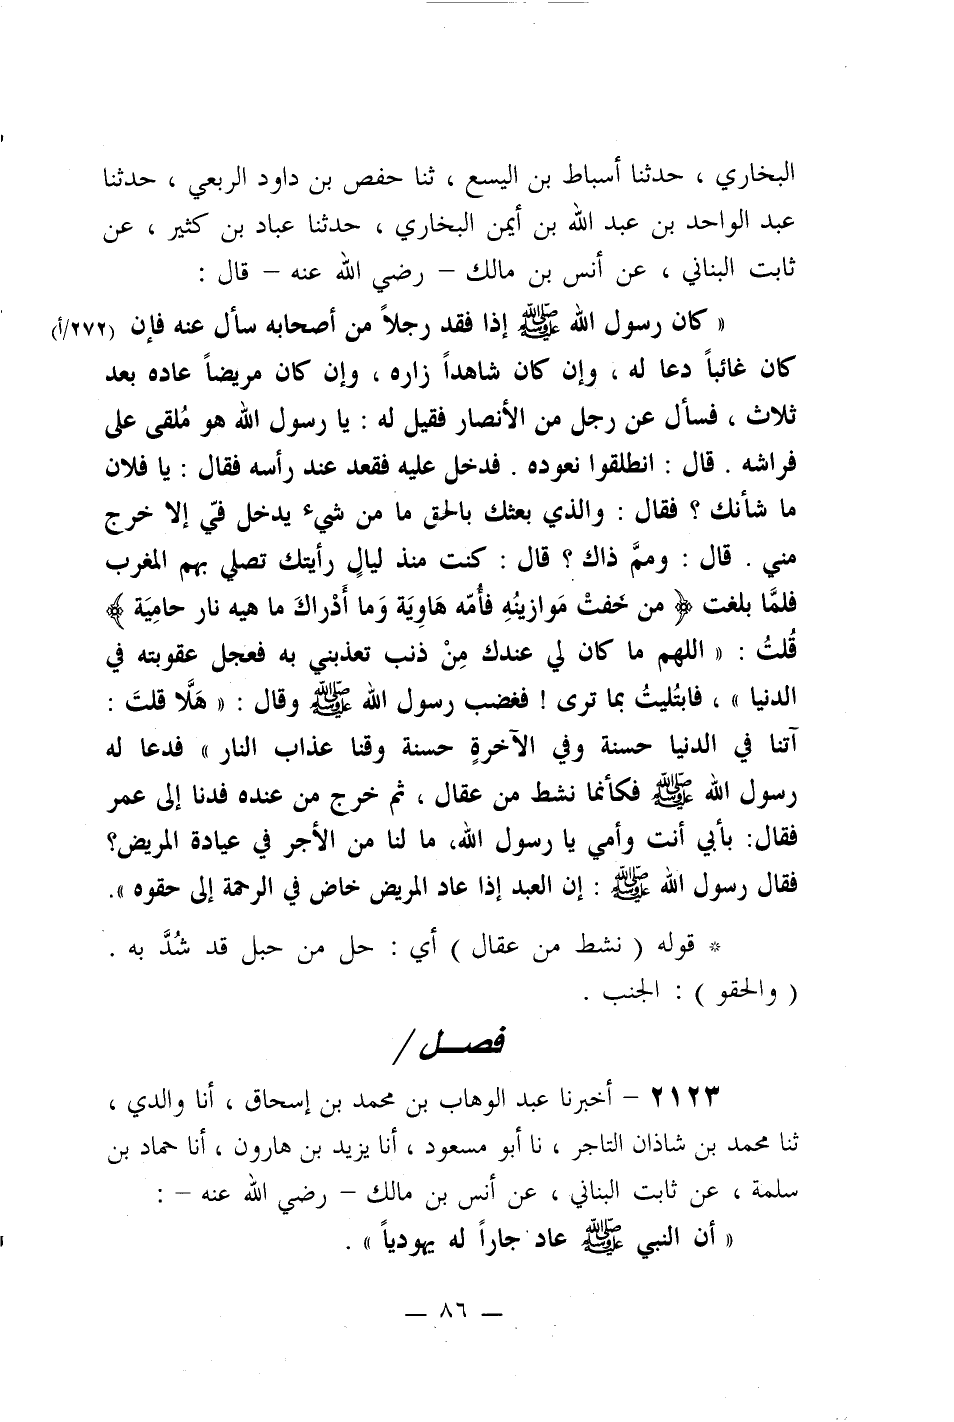 البخاري ، حدثنا أسباط بن اليسع ، ثنا حفص بن داود الربعي ، حدثنا
عبد الواحد بن عبد الله بن أيمن البخاري ، حدثنا عباد بن كثير ، عن
ثابت البناني ، عن أنس بن مالك – رضي الله عنه – قال :
« كان رسول الله ﷺ إذا فقد رجلاً من أصحابه سأل عنه فإن (٢٧٢/أ)
كان غائباً دعا له ، وإن كان شاهداً زاره ، وإن كان مريضاً عاده بعد
ثلاث ، فسأل عن رجل من الأنصار فقيل له : يا رسول الله هو مُلقى على
فراشه . قال : انطلقوا نعوده . فدخل عليه فقعد عند رأسه فقال : يا فلان
ما شأنك ؟ فقال : والذي بعثك بالحق ما من شيء يدخل فيّ إلا خرج
مني . قال : وممَّ ذاك ؟ قال : كنت منذ ليالٍ رأيتك تصلي بهم المغرب
فلمَّا بلغت ﴿ من خَفتْ مَوازينُهِ فأُمّه هَاوِيَة وَما أَدْراكَ ما هيه نار حامِيَة ﴾
قُلتُ : « اللهم ما كان لي عندك مِنْ ذنب تعذبني به فعجل عقوبته في
الدنيا » ، فابتُليتُ بما ترى ! فغضب رسول الله ﷺ وقال : « هَلَّا قلتَ :
آتنا في الدنيا حسنة وفي الآخرةِ حسنة وقنا عذاب النار » فدعا له
رسول الله ﷺ فكأنما نشط من عقال ، ثم خرج من عنده فدنا إلى عمر
فقال: بأبي أنت وأمي يا رسول الله، ما لنا من الأجر في عيادة المريض؟
فقال رسول الله ﷺ : إن العبد إذا عاد المريض خاض في الرحمة إلى حقوه ».
* قوله ( نشط من عقال ) أي : حل من حبل قد شُدَّ به .
( والحقو ) : الجنب .
فصـــل /
٢١٢٣ – أخبرنا عبد الوهاب بن محمد بن إسحاق ، أنا والدي ،
ثنا محمد بن شاذان التاجر ، نا أبو مسعود ، أنا يزيد بن هارون ، أنا حماد بن
سلمة ، عن ثابت البناني ، عن أنس بن مالك – رضي الله عنه – :
« أن النبي ﷺ عاد جاراً له يهودياً » .
— ٨٦ —